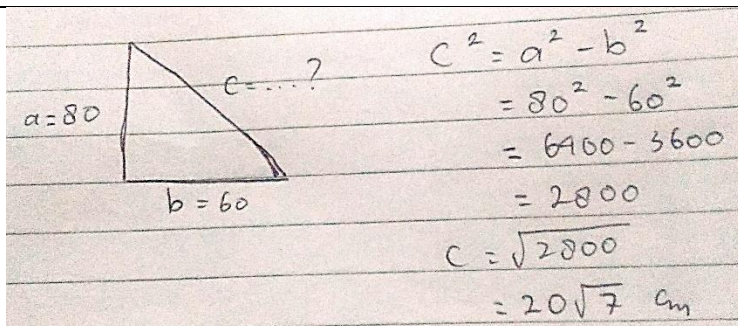 a = 80
c = ....?
b = 60
c² = a² - b²
= 80² - 60²
= 6400 - 3600
= 2800
c = √2800
= 20√7 cm